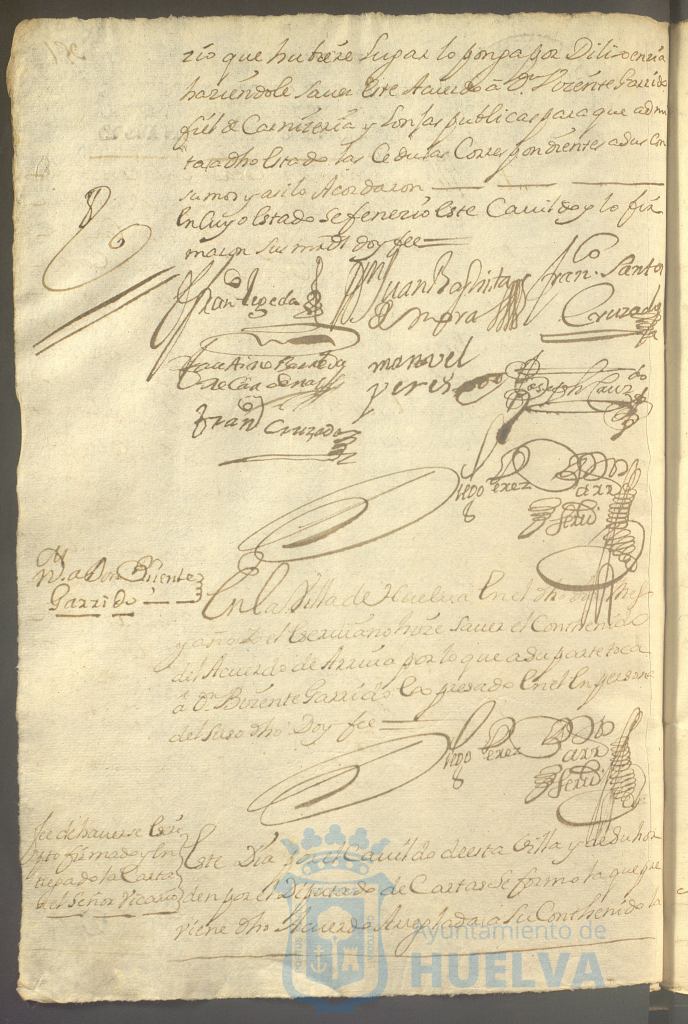 zio que hubiere lugar lo ponga por Diligenzia
haziendole saver este Acuerdo à Dn. Vizente Garrido
fiel de Carnizeria y lonjas publicas para que
a dho Estado las Cedulas Correspondientes a dus con
sumos y asi lo Acordaron
En Cuyo estado se fenezio este Cavildo y lo fir
maron sus mrds. doy fee =
Fran.co Zepeda
Juan Baphtta
de Mora
Fran.co Santos
Cruzado
Faustino Barreda
de Cardenas
manuel
perez
Joseph
Fran.co Cruzado
Diego Perez
N.n a Don Bizente
Garrido
En la Villa de Huelva en el dho dia mes
y año Yo el Escrivano hize saver el Conthenido
del Acuerdo de Arriva por lo que a su parte toca
à Dn. Bizente Garrido en persona
del suso dho Doy fee =
Diego Perez
fee de haverse Escri
pto firmado y en
tregado la Carta
del Señor Vicario
Este Dia por el Cavildo de esta Villa y de su hor
den por el Diputado de Cartas se formo la que pre
viene dho Acuerdo Arreglada à su Conthenido la
Ayuntamiento de
HUELVA